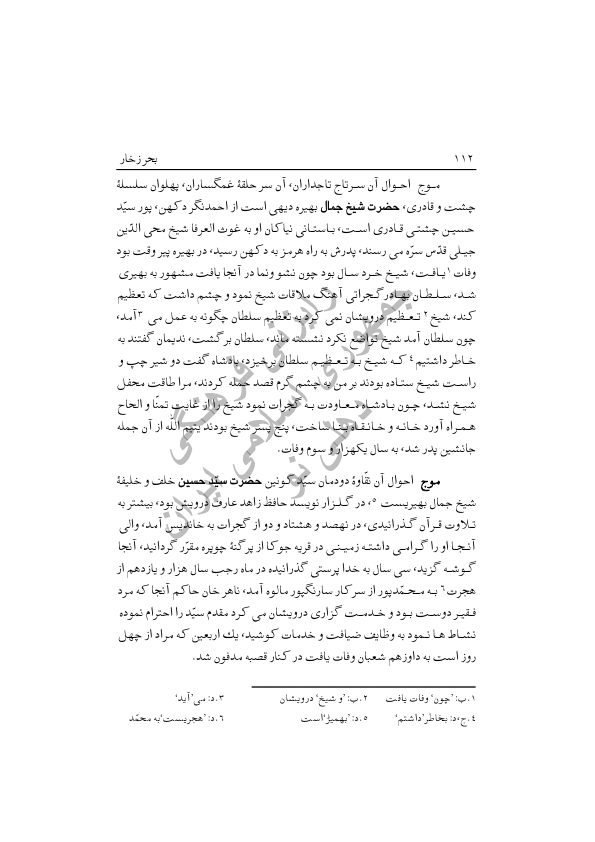 ۱۱۲ بحر زخار
مـوج احـوال آن سـرتاج تاجداران، آن سر حلقۀ غمگساران، پهلوان سلسلۀ
چشت و قادری، حضرت شیخ جمال بهیره دیهی است از احمدنگر دکهن، پور سیّد
حسیـن چشتـی قـادری اسـت، بـاستـانی نیاکان او به غوث العرفا شیخ محی الدّین
جیـلی قدّس سرّه می رسند، پدرش به راه هرمز به دکهن رسید، در بهیره پیر وقت بود
وفات ۱ یـافـت، شیـخ خـرد سـال بود چون نشو ونما در آنجا یافت مشهور به بهیری
شـد، سلـطـان بهـادر گـجراتی آهنگ ملاقات شیخ نمود و چشم داشت که تعظیم
کند، شیخ ۲ تـعـظیم درویشان نمی کرد به تعظیم سلطان چگونه به عمل می ۳ آمد،
چون سلطان آمد شیخ تواضع نکرد نشسته ماند، سلطان برگشت، ندیمان گفتند به
خـاطر داشتیم ٤ کـه شیـخ بـه تـعـظیـم سلطان برخیزد، پادشاه گفت دو شیر چپ و
راسـت شیـخ ستـاده بودند بر من به چشم گرم قصد حمله کردند، مرا طاقت محفل
شیخ نشـد، چـون بـادشـاه معـاودت بـه گجرات نمود شیخ را از غایت تمنّا و الحاح
همـراه آورد خـانـه و خـانـقـاه بـنـا ساخت، پنج پسر شیخ بودند یتیم الله از آن جمله
جانشین پدر شد، به سال یکهزار و سوم وفات.
موج احوال آن نقّاوۀ دودمان سیّد کونین حضرت سیّد حسین خلف و خلیفۀ
شیخ جمال بهیریست ٥، در گـلـزار نویسد حافظ زاهد عارف درویش بود، بیشتر به
تـلاوت قـرآن گـذرانیدی، در نهصد و هشتاد و دو از گجرات به خاندیس آمد، والی
آنـجـا او را گـرامـی داشتـه زمیـنـی در قریه جوکا از پرگنۀ چوپره مقرّر گردانید، آنجا
گـوشـه گزید، سی سال به خدا پرستی گذرانیده در ماه رجب سال هزار و یازدهم از
هجرت ٦ بـه محـمّدپور از سرکار سارنگپور مالوه آمد، ناهر خان حاکم آنجا که مرد
فـقیـر دوسـت بـود و خـدمـت گزاری درویشان می کرد مقدم سیّد را احترام نموده
نشـاط هـا نـمود به وظایف ضیافت و خدمات کوشید، یك اربعین که مراد از چهل
روز است به داوزهم شعبان وفات یافت در کنار قصبه مدفون شد.
۱.ب: 'چون' وفات یافت ۲.ب: 'و شیخ' درویشان ۳.د: می 'آید'
٤.ج،د: بخاطر 'داشتم' ٥.د: 'بهمیژ' است ٦.د: 'هجریست' به محمّد
جمهوری اسلامی ایران
دهلی نو